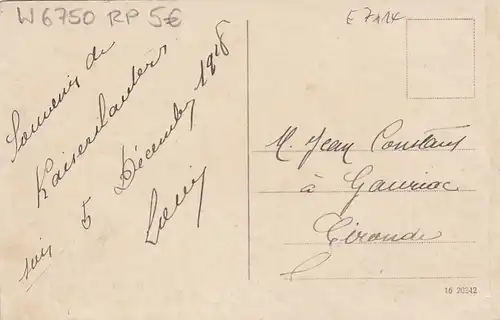 W6750 RP 5€
E 7214
Souvenir de
Kaiserslautern
soir 5 Décembre 1918
Louis
M. Jean Constant
à Gauriac
Gironde
16 20312